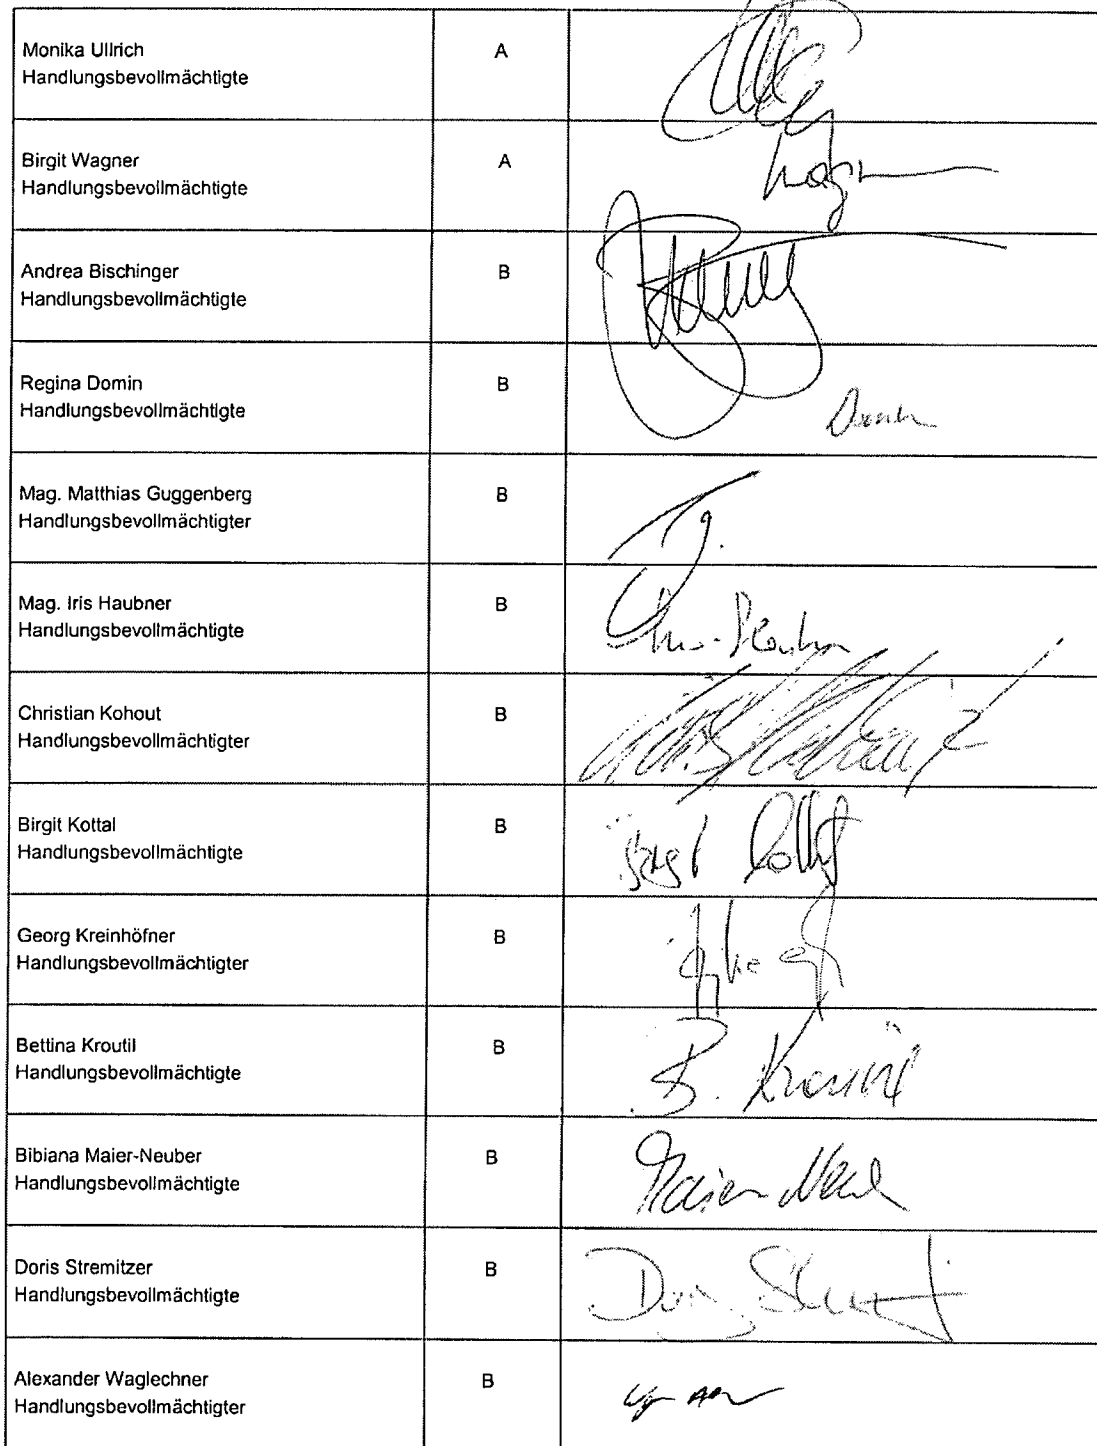 Monika Ullrich
Handlungsbevollmächtigte
A
Birgit Wagner
Handlungsbevollmächtigte
A
Wagn
Andrea Bischinger
Handlungsbevollmächtigte
B
Regina Domin
Handlungsbevollmächtigte
B
Mag. Matthias Guggenberg
Handlungsbevollmächtigter
B
Mag. Iris Haubner
Handlungsbevollmächtigte
B
Christian Kohout
Handlungsbevollmächtigter
B
Birgit Kottal
Handlungsbevollmächtigte
B
Georg Kreinhöfner
Handlungsbevollmächtigter
B
Bettina Kroutil
Handlungsbevollmächtigte
B
B. Kroutil
Bibiana Maier-Neuber
Handlungsbevollmächtigte
B
Doris Stremitzer
Handlungsbevollmächtigte
B
Alexander Waglechner
Handlungsbevollmächtigter
B